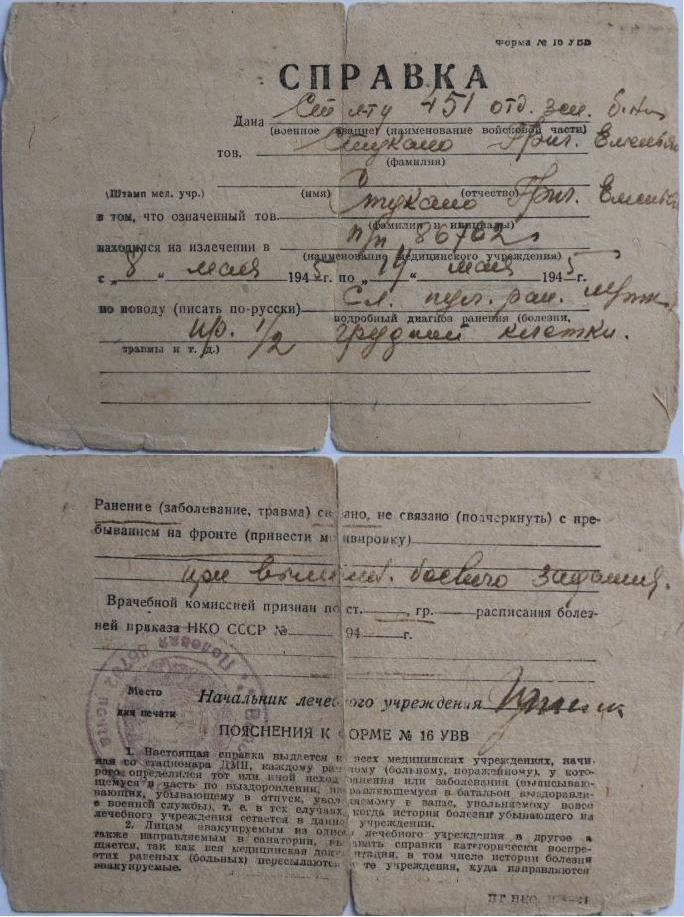 Форма № 16 УВВ
СПРАВКА
Дана 451 отд. зен.
(военное звание) (наименование войсковой части)
тов. Стукало Григ.
(фамилия)
(Штамп мед. учр.) (имя) (отчество)
в том, что означенный тов. Стукало Григ.
(фамилия и инициалы)
находился на излечении в п/п 86702
(наименование медицинского учреждения)
с „8“ мая 1945г. по „19“ мая 1945г.
по поводу (писать по-русски) Сл. пул. ран.
подробный диагноз ранения (болезни,
пр. 1/2 грудной клетки.
травмы и т. д.)
Ранение (заболевание, травма) связано, не связано (подчеркнуть) с пре-
быванием на фронте (привести мотивировку)
при боевого задания.
Врачебной комиссией признан по ст. , гр. расписания болез-
ней приказа НКО СССР № 194 г.
Полевая почта 86702
Место Начальник лечебного учреждения
для печати
ПОЯСНЕНИЯ К ФОРМЕ № 16 УВВ
1. Настоящая справка выдается из всех медицинских учреждениях, начи-
ная со стационара ДМП, каждому раненому (больному, пораженному), у кото-
рого определился тот или иной исход ранения или заболевания (выписываю-
щемуся в часть по выздоровлении, направляющемуся в батальон выздоравли-
вающих, убывающему в отпуск, увольняемому в запас, увольняемому вовсе
с военной службы), т. е. в тех случаях, когда история болезни убывающего из
лечебного учреждения остается в данном учреждении.
2. Лицам эвакуируемым из одного лечебного учреждения в другое а
также направляемым в санатории, выдавать справки категорически воспре-
щается, так как вся медицинская документация, в том числе истории болезни
этих раненых (больных) пересылаются в те учреждения, куда направляются
эвакуируемые.